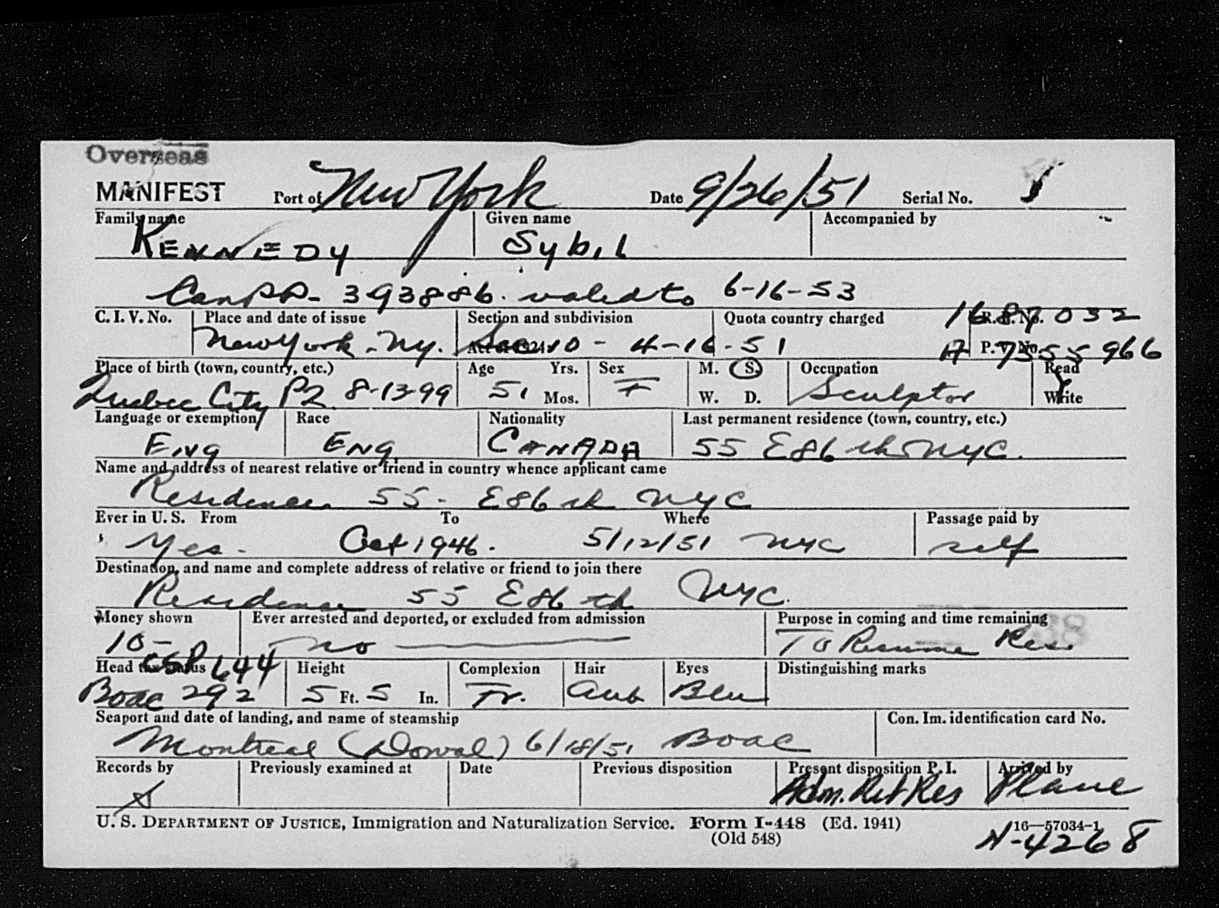 Overseas
MANIFEST Port of New York Date 9/26/51 Serial No. 1
Family name Given name Accompanied by
KENNEDY Sybil
Can PP- 393886. valid to 6-16-53
C. I. V. No. Place and date of issue Section and subdivision Quota country charged R.E. No. 1687032
New York - NY. Sec 10 - 4-16-51 P. T. No. 7355966
Place of birth (town, country, etc.) Age Yrs. Sex M. S. Occupation Read
Quebec City PQ 8-13-99 51 Mos. F W. D. Sculptor Write
Language or exemption Race Nationality Last permanent residence (town, country, etc.)
ENG ENG CANADA 55 E 86 th NYC.
Name and address of nearest relative or friend in country whence applicant came
Residence 55 - E 86 th NYC
Ever in U. S. From To Where Passage paid by
Yes. Oct 1946. 5/12/51 NYC self
Destination, and name and complete address of relative or friend to join there
Residence 55 E 86 th NYC.
Money shown Ever arrested and deported, or excluded from admission Purpose in coming and time remaining
10- no To Resume Res.
Head tax status 644 Height Complexion Hair Eyes Distinguishing marks
Boac 292 5 Ft. 5 In. Fr. Aub Blu
Seaport and date of landing, and name of steamship Con. Im. identification card No.
Montreal (Dorval) 6/18/51 Boac
Records by Previously examined at Date Previous disposition Present disposition P. I. Arrived by
Adm. Ret Res Plane
U. S. DEPARTMENT OF JUSTICE, Immigration and Naturalization Service. Form I-448 (Ed. 1941) 16—57034-1
(Old 548) N-4268